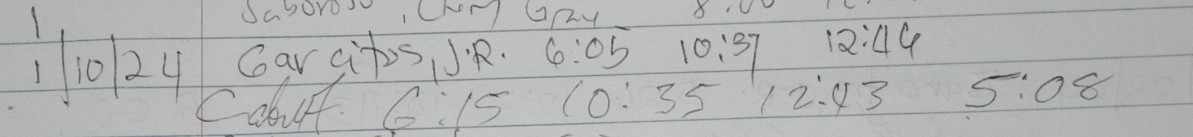 1 Saboroso, Gray 8:00
1/10/24 Garcitos, J.R. 6:05 10:37 12:44
6:15 10:35 12:43 5:08